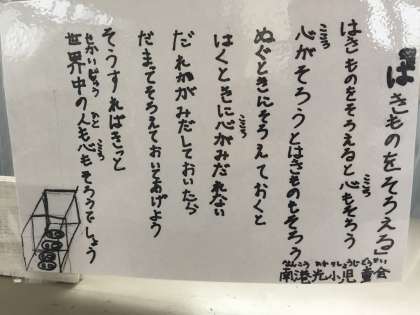 「はきものをそろえる」
はきものをそろえると心もそろう
心がそろうとはきものもそろう
ぬぐときにそろえておくと
はくときに心がみだれない
だれかがみだしておいたら
だまってそろえておいてあげよう
そうすればきっと
世界中の人も心もそろうでしょう
南港光小児童会